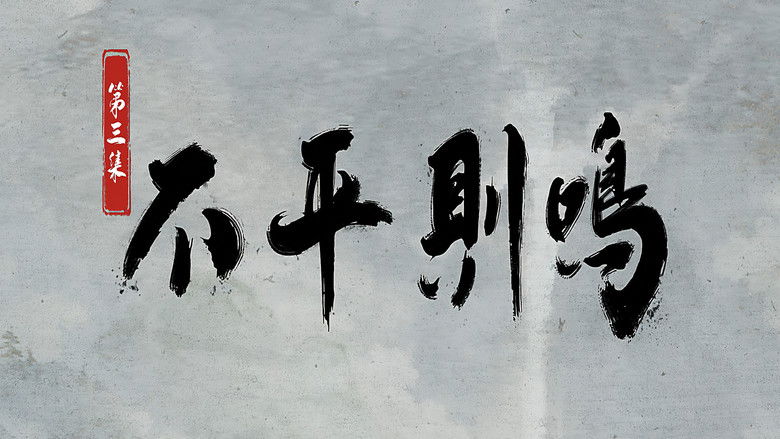 第三集
不平則鳴